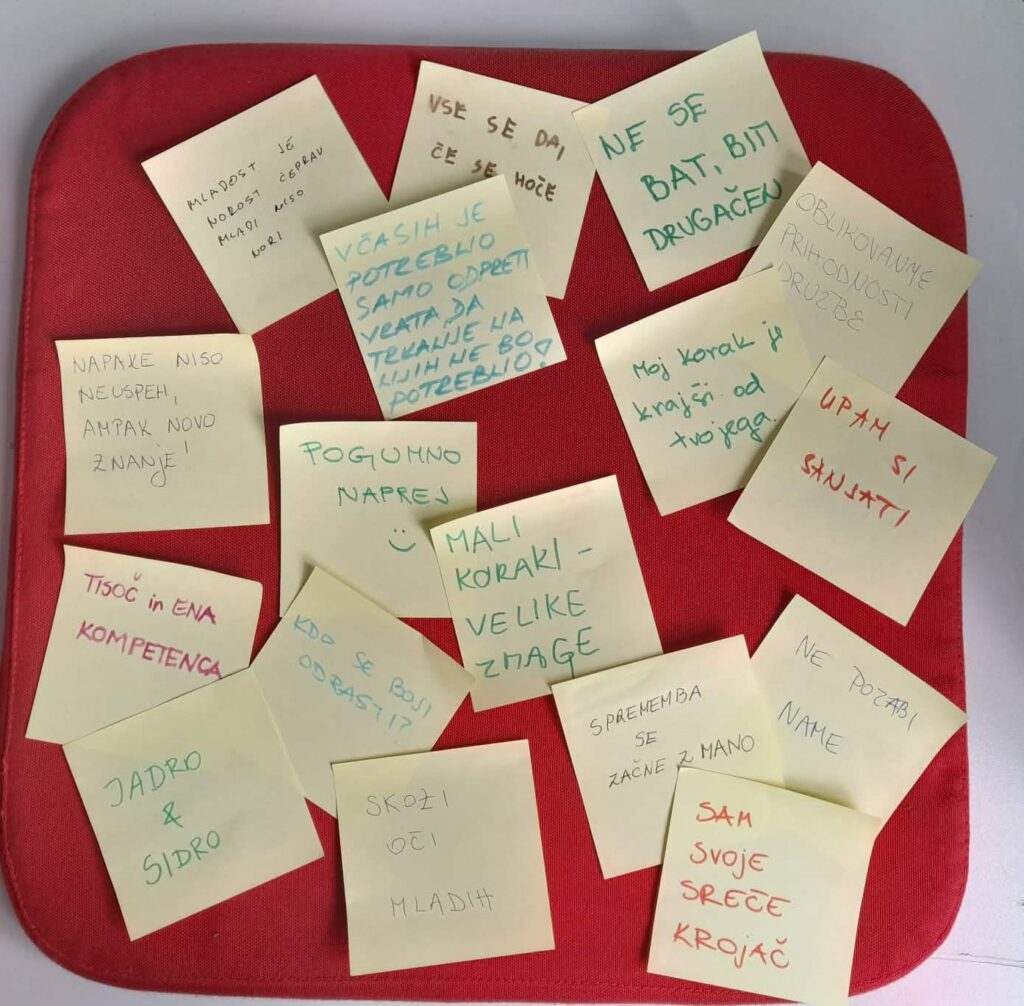 MLADOST JE
NOROST ČEPRAV
MLADI NISO
NORI
VSE SE DA,
ČE SE HOČE
NE SE
BAT, BITI
DRUGAČEN
VČASIH JE
POTREBNO
SAMO ODPRETI
VRATA, DA
TRKANJE NA
NJIH NE BO
POTREBNO!
OBLIKOVANJE
PRIHODNOSTI
DRUŽBE
NAPAKE NISO
NEUSPEH,
AMPAK NOVO
ZNANJE!
Moj korak je
krajši od
tvojega.
UPAM
SI
SANJATI
POGUMNO
NAPREJ
MALI
KORAKI -
VELIKE
ZMAGE
TISOČ in ENA
KOMPETENCA
KDO SE BOJI
ODRASTI?
SPREMEMBA
SE
ZAČNE Z MANO
NE POZABI
NAME
JADRO
&
SIDRO
SKOZI
OČI
MLADIH
SAM
SVOJE
SREČE
KROJAČ